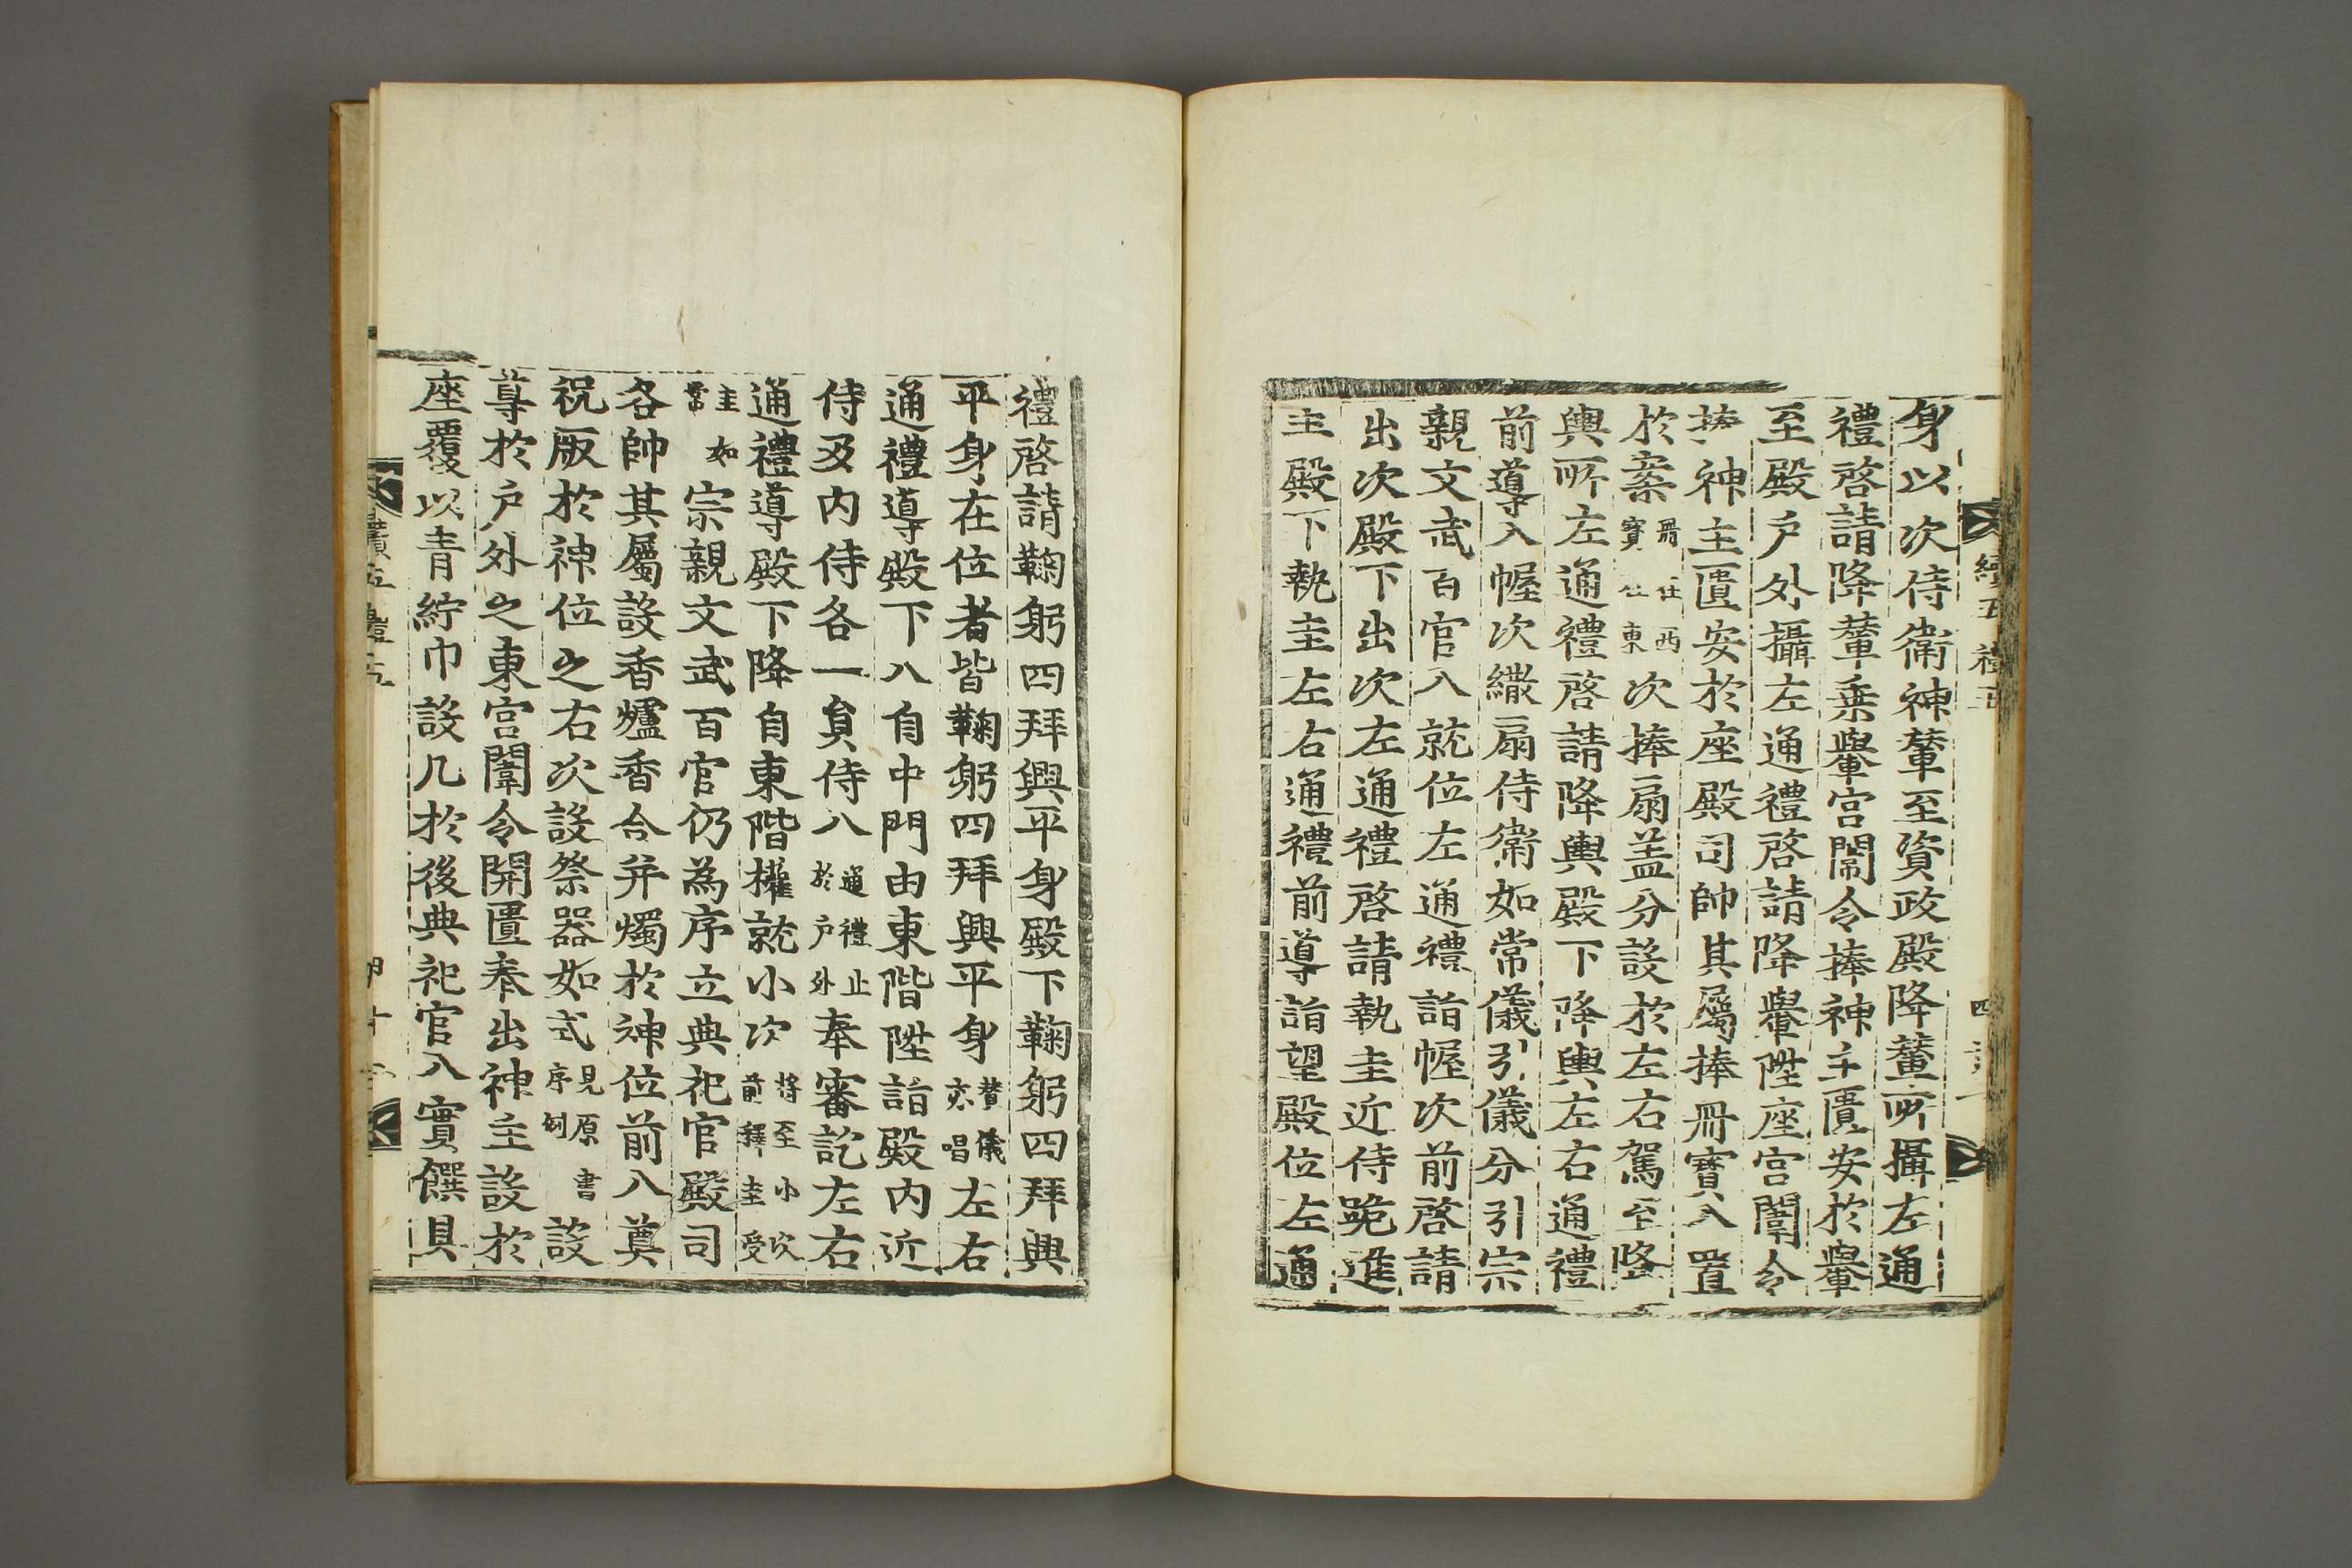 身以次侍衛神輦至資政殿降輦所攝左通
禮啓請降輦乗轝宮闈令捧神主匱安於轝
至殿戶外攝左通禮啓請降轝陞座宮闈令
捧神主匱安於座殿司帥其屬捧冊寶入置
於案冊在西寶在東次捧扇盖分設於左右駕至降
輿所左通禮啓請降輿殿下降輿左右通禮
前導入幄次繖扇侍衛如常儀引儀分引宗
親文武百官入就位左通禮詣幄次前啓請
出次殿下出次左通禮啓請執圭近侍跪進
圭殿下執圭左右通禮前導詣望殿位左通
續五禮五
禮啓請鞠躬四拜興平身殿下鞠躬四拜興
平身在位者皆鞠躬四拜興平身賛儀亦唱左右
通禮導殿下入自中門由東階陞詣殿内近
侍及内侍各一員侍入通禮止於戶外奉審訖左右
通禮導殿下降自東階權就小次將至小次前釋圭受
圭如常宗親文武百官仍為序立典祀官殿司
各帥其屬設香爐香合并燭於神位前入奠
祝版於神位之右次設祭器如式見原書序例設
尊於戶外之東宮闈令開匱奉出神主設於
座覆以青紵巾設几於後典祀官入實饌具
續五禮五